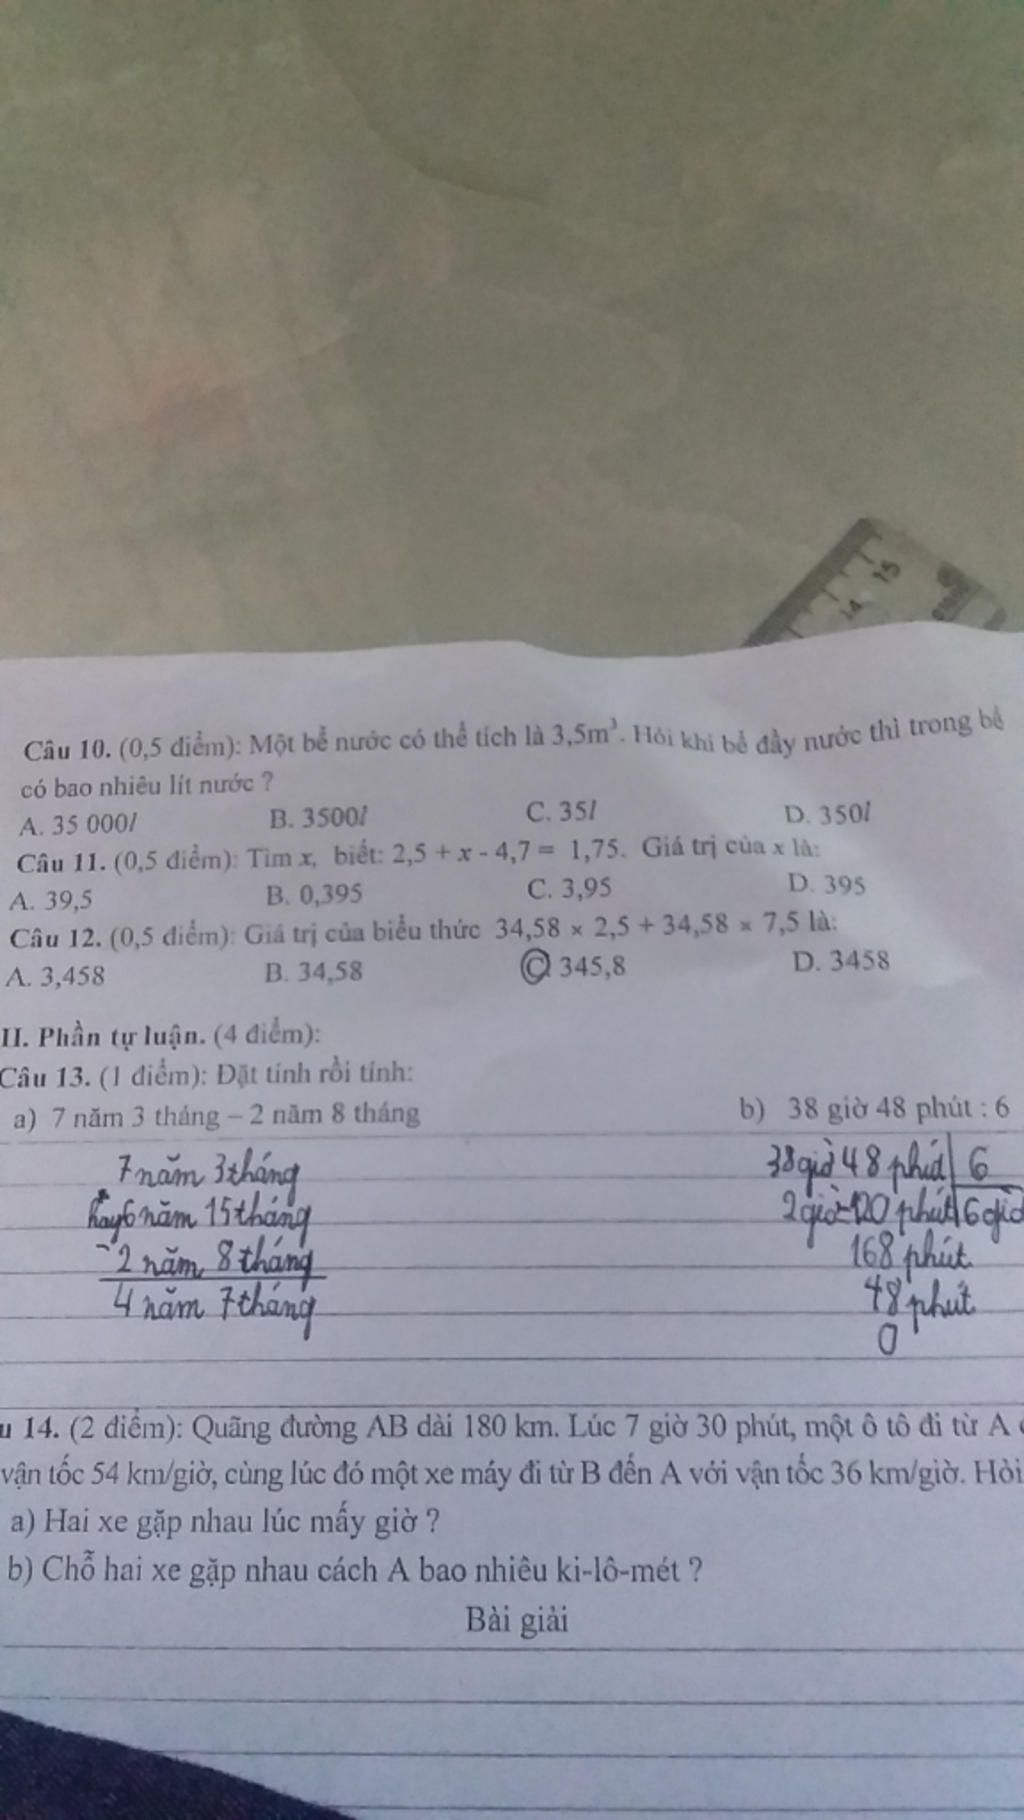 14 15
Câu 10. (0,5 điểm): Một bể nước có thể tích là 3,5m³. Hỏi khi bể đầy nước thì trong bể
có bao nhiêu lít nước ?
A. 35 000l B. 3500l C. 35l D. 350l
Câu 11. (0,5 điểm): Tìm x, biết: 2,5 + x - 4,7 = 1,75. Giá trị của x là:
A. 39,5 B. 0,395 C. 3,95 D. 395
Câu 12. (0,5 điểm): Giá trị của biểu thức 34,58 × 2,5 + 34,58 × 7,5 là:
A. 3,458 B. 34,58 C. 345,8 D. 3458
II. Phần tự luận. (4 điểm):
Câu 13. (1 điểm): Đặt tính rồi tính:
a) 7 năm 3 tháng – 2 năm 8 tháng b) 38 giờ 48 phút : 6
7 năm 3 tháng 38 giờ 48 phút 6
hay 6 năm 15 tháng 2 giờ = 120 phút 6 giờ
- 2 năm 8 tháng 168 phút
4 năm 7 tháng 48 phút
0
u 14. (2 điểm): Quãng đường AB dài 180 km. Lúc 7 giờ 30 phút, một ô tô đi từ A
vận tốc 54 km/giờ, cùng lúc đó một xe máy đi từ B đến A với vận tốc 36 km/giờ. Hỏi
a) Hai xe gặp nhau lúc mấy giờ ?
b) Chỗ hai xe gặp nhau cách A bao nhiêu ki-lô-mét ?
Bài giải